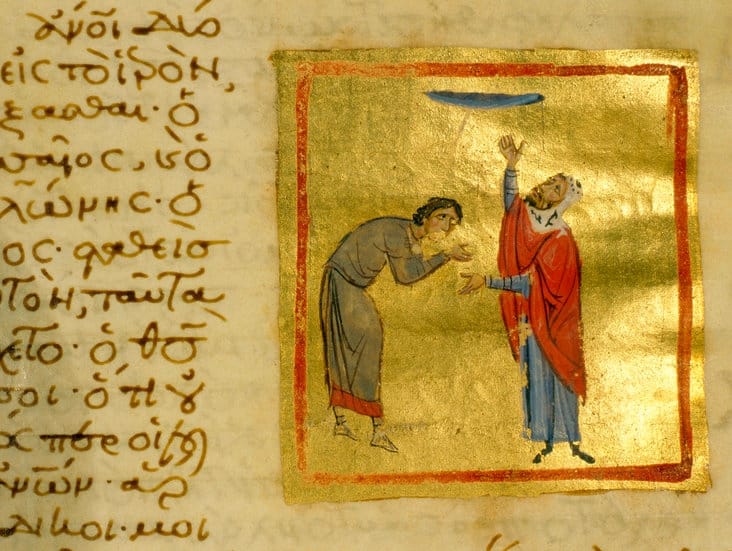 ἄνοι δύο
εἰς τὸ ἱερὸν,
ξασθαι· ὁ
σαῖος, κ ὁ
λώνης· ὁ
ος· σταθεὶς
τὸν, ταῦτα
χετο· ὁ θς
σοι· ὅτι οὐ
ὥσπερ οἱ
ἀνῶν· ἅρ
ἄδικοι· μοι